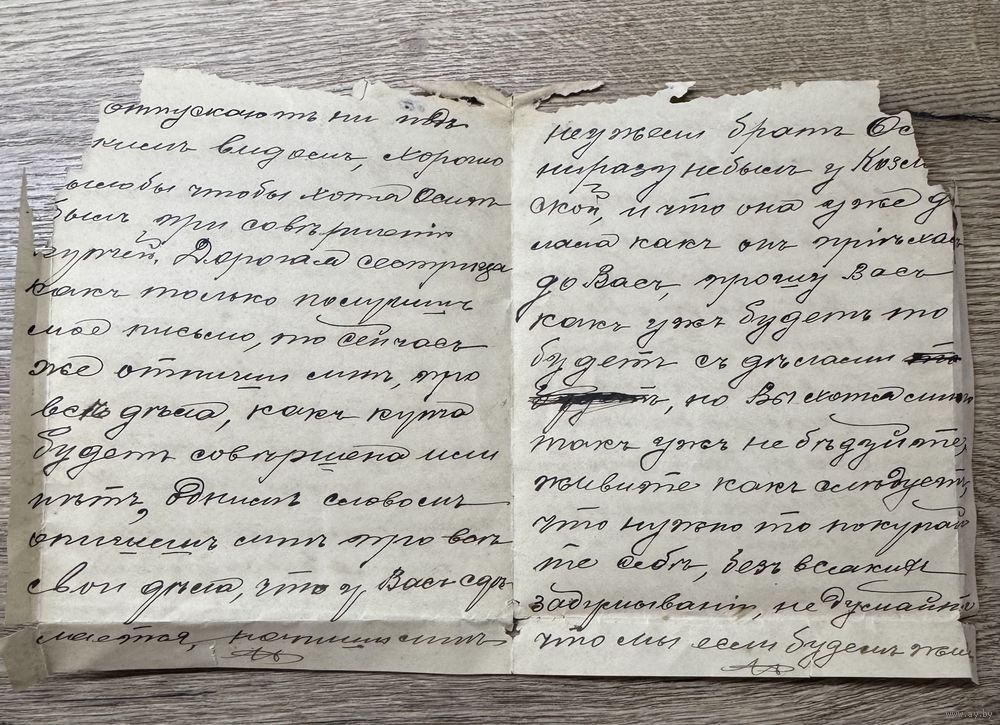 отпускаютъ ни подъ
кимъ видомъ, хорошо
былобы чтобы хотя Осипъ
былъ при совѣршеніи
купчей, Дорогая сестрица
какъ только получишъ
мое письмо, то сейчасъ
же отпиши мнѣ, про
всѣ дѣла, какъ купча
будетъ совѣршена или
нѣтъ, Однимъ словомъ
опишешъ мнѣ про всѣ
свои дѣла, что у Васъ сдѣ-
лается, напиши мнѣ
неужели братъ Ос
ниразу небылъ у Козл
ской, и что она уже д
лала какъ онъ пріѣхалъ
до Васъ, прошу Васъ
какъ ужъ будетъ то
будетъ съ дѣлами
, но Вы хотя
такъ ужъ не бѣдуйте,
живите какъ слѣдуетъ,
что нужно то покупай
те себѣ, безъ всякихъ
задумываній, не думайте
что мы если будемъ жи
www.ay.by